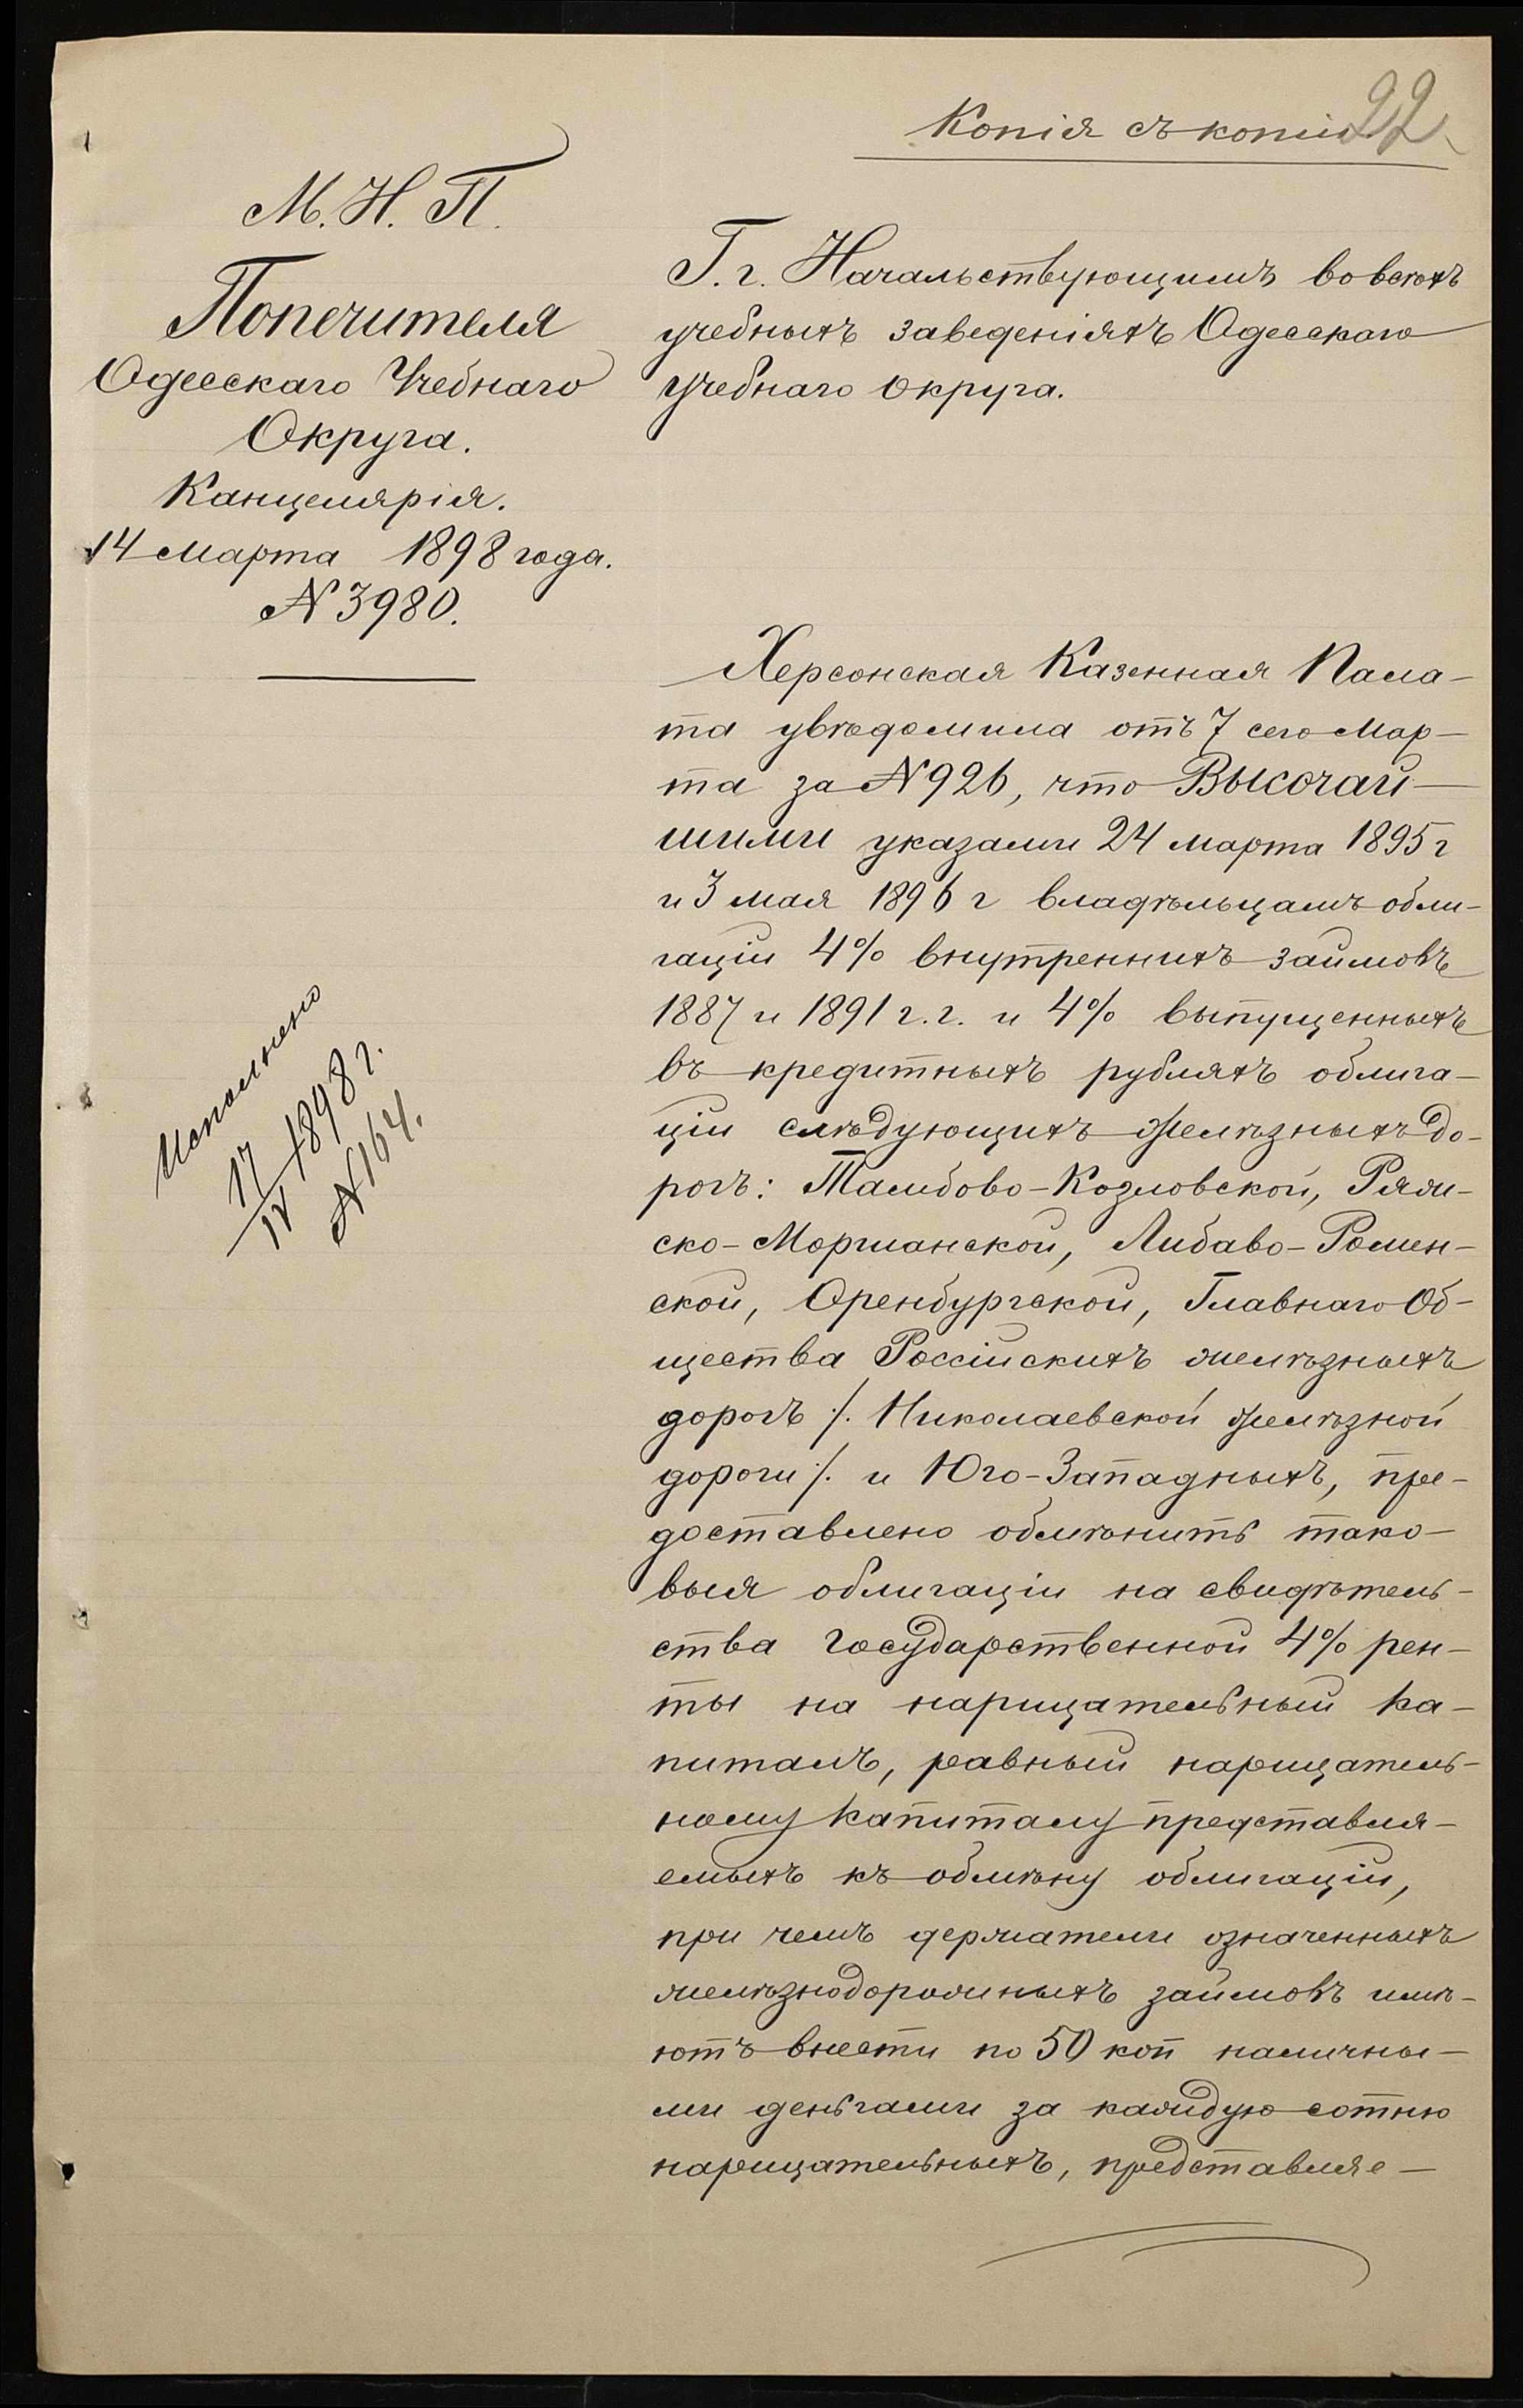 Копія съ копіи 22
М. Н. П.
Попечителя
Одесскаго Учебнаго
Округа.
Канцелярія.
14 марта 1898 года.
№ 3980.
Исполнено
17/IV 1898 г.
№ 164.
Г.г. Начальствующимъ во всѣхъ
учебныхъ заведеніяхъ Одесскаго
учебнаго округа.
Херсонская Казенная Пала-
та увѣдомила отъ 7 сего Мар-
та за № 926, что Высочай-
шими указами 24 марта 1895 г
и 3 мая 1896 г владѣльцамъ обли-
гаціи 4% внутреннихъ займовъ
1887 и 1891 г.г. и 4% выпущенныхъ
въ кредитныхъ рубляхъ облига-
ціи слѣдующихъ желѣзныхъ до-
рогъ: Тамбово-Козловской, Ряж-
ско-Моршанской, Либаво-Ромен-
ской, Оренбургской, Главнаго Об-
щества Россійскихъ желѣзныхъ
дорогъ /. Николаевской желѣзной
дороги /. и Юго-Западныхъ, пре-
доставлено обмѣнить тако-
выя облигаціи на свидѣтель-
ства Государственной 4% рен-
ты на нарицательный ка-
питалъ, равный нарицатель-
ному капиталу представля-
емыхъ къ обмѣну облигацій,
при чемъ держатели означенныхъ
желѣзнодорожныхъ займовъ имѣ-
ютъ внести по 50 коп наличны-
ми деньгами за каждую сотню
нарицательныхъ, представляе-